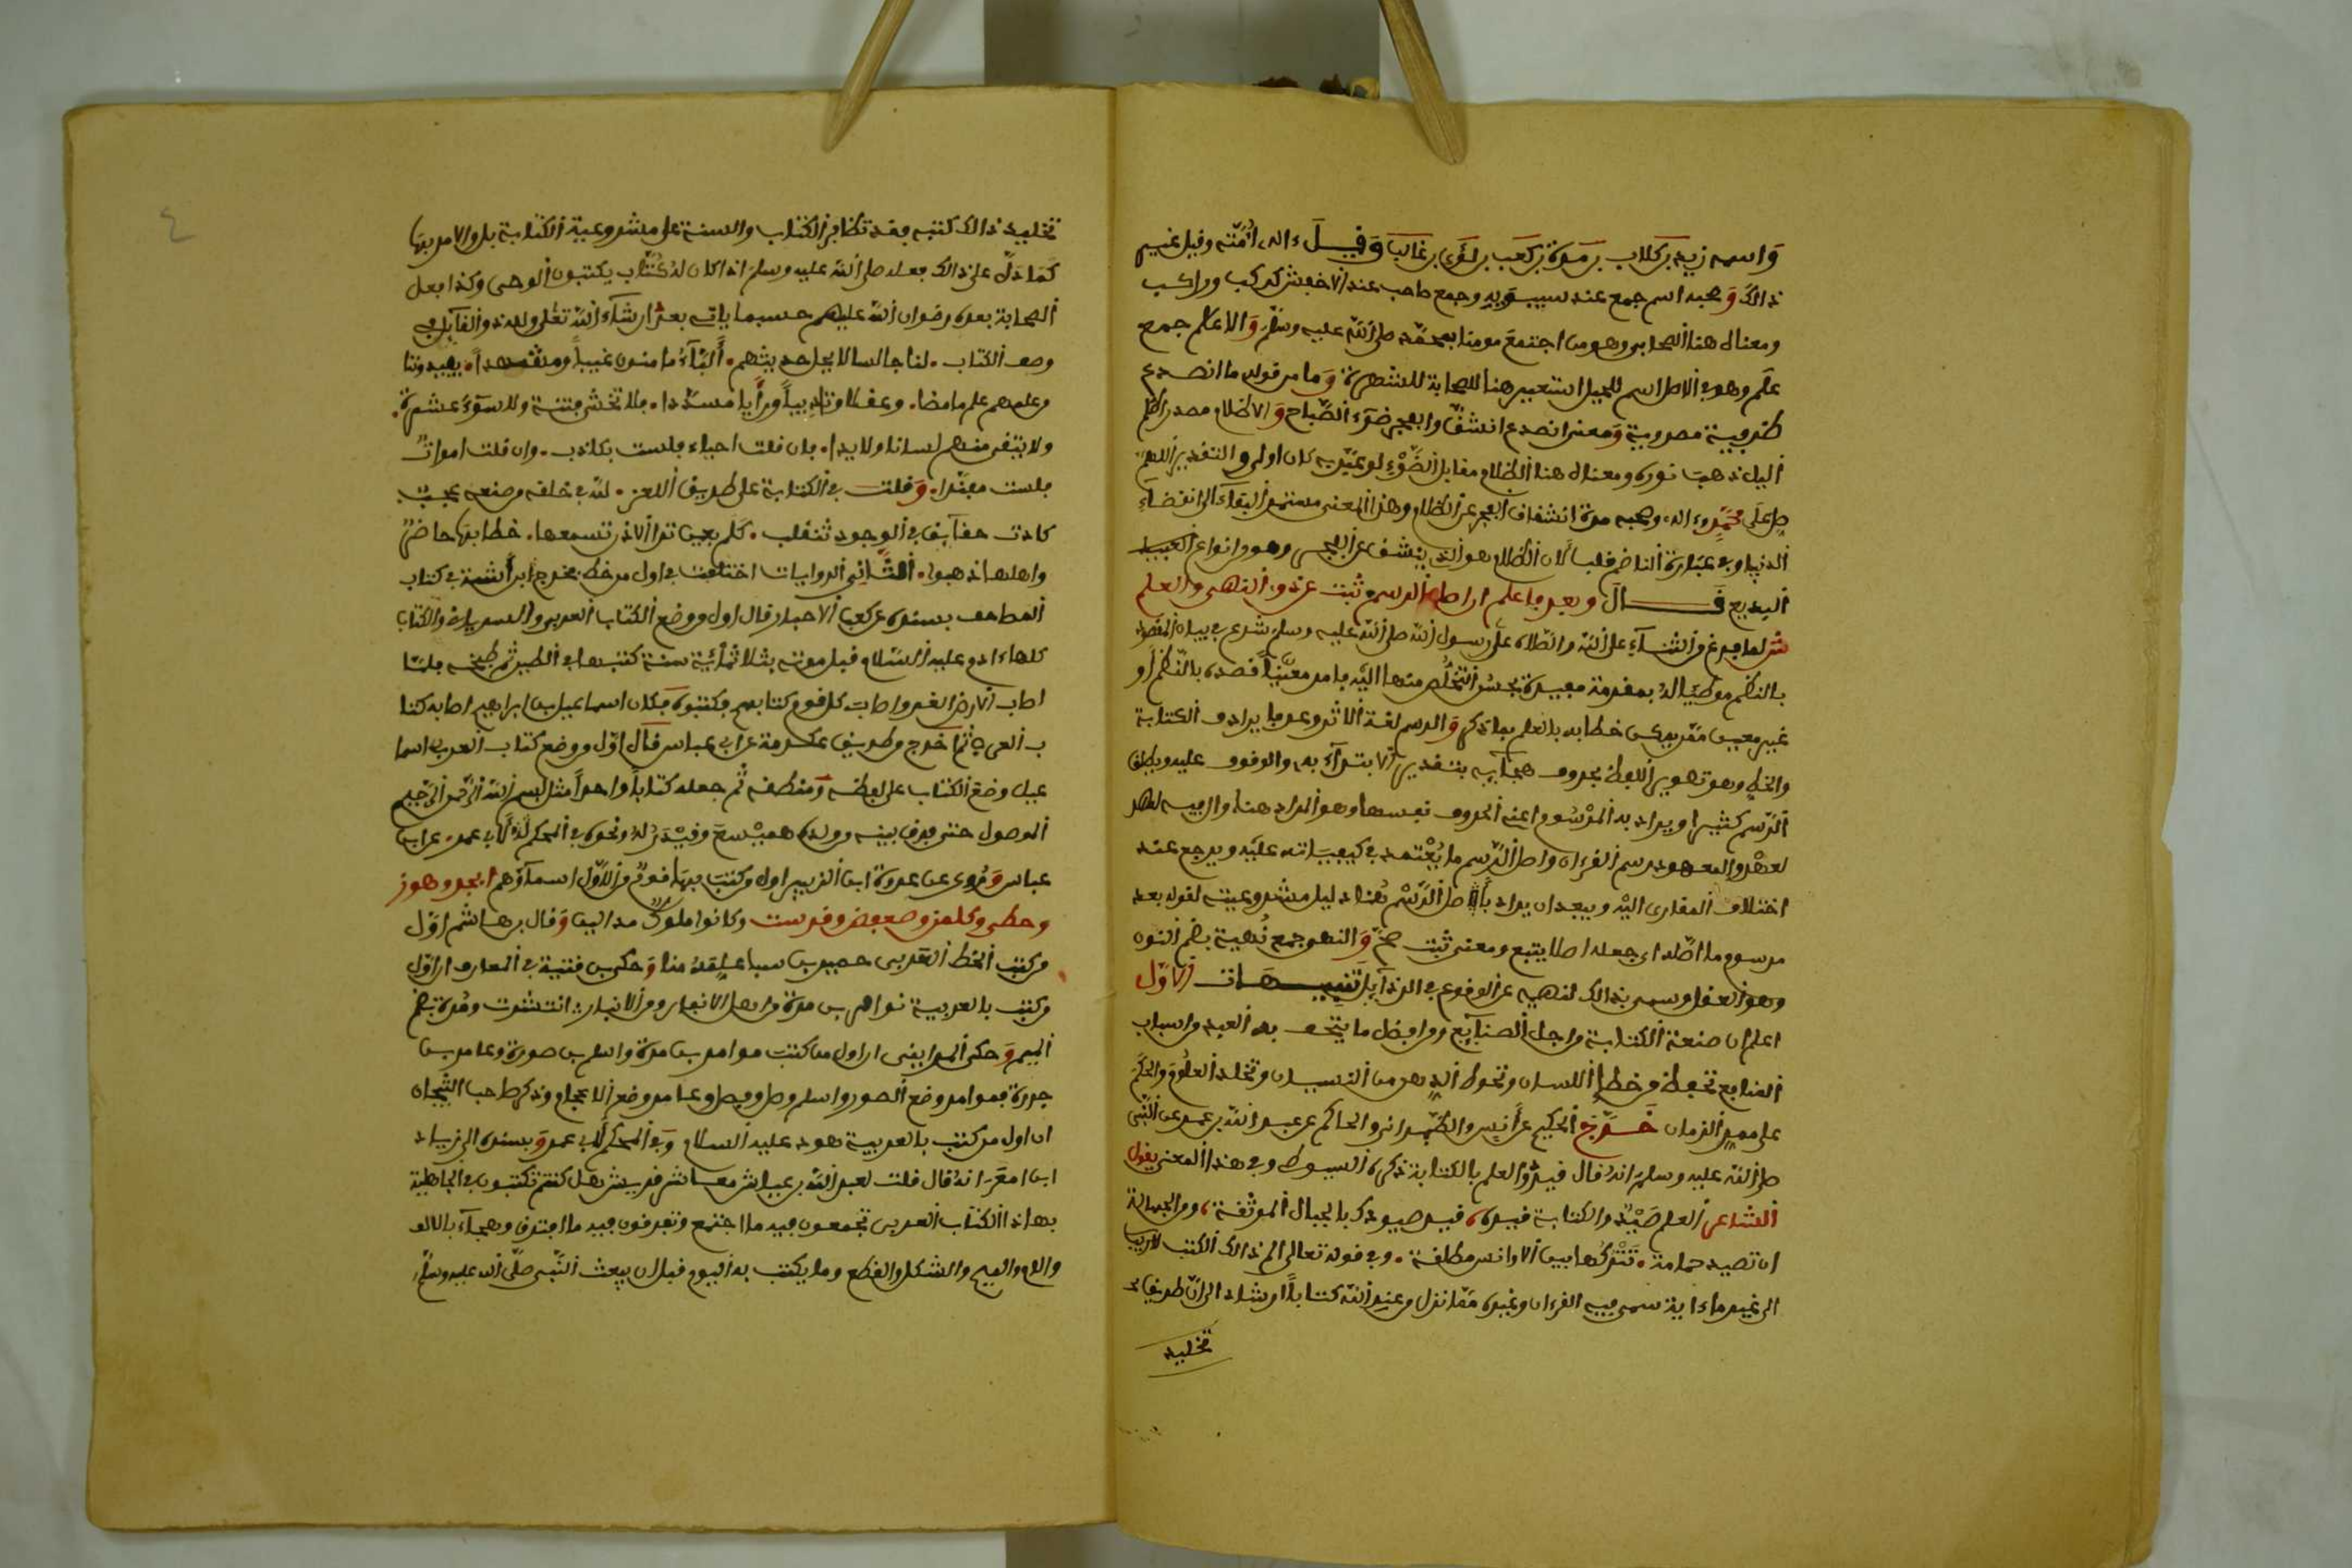 وَاسمه زيد بن كلاب بن مرة بن كعب بن لؤي بن غالب وَقِيلَ ءاله أمّته وقيل غير
ذالك وَصحبه اسم جمع عند سيبويه وجمع صاحب عند الاخفش كركب وراكب
ومعناه هنا الصحابي وهو من اجتمع مومنا بمحمّد صلى الله عليه وسلم وَالاعلام جمع
علم وهو في الاصل اسم للجبل استعير هنا للصحابة للشهرة وَما من قوله ما انصدع
ظرفية مصدرية وَمعنى انصدع انشقّ والفجر ضوء الصّباح وَالاظلام مصدر اظلم
اليل ذهب نوره ومعناه هنا الظلام مقابل الضّوْء لو عبّر به كان اولى والتقدير اللهم
صل على محمد وءاله وصحبه مدة انشقاق الفجر عن الظلام وهذا المعنى مستمر البقاء الى انقضاء
الدنيا وفي عبارة الناظم قلب لان الظلام هو الذي ينشق عن الفجر وهو من انواع
البديع قَــال وبعد فاعلم ان اصل الرسم ثبت عن ذوي النهى والعلم
ش لما فرغ من الثناء على الله والصلاة على رسول الله صلى الله عليه وسلم شرع في بيان المقصود
بالنظم موطّئا له بمقدمة مفيدة يحسن التخلص منها اليه فامر معيَّناً قصده بالنّظم او
غير معين مقرر يمكن خطابه بالعلم بما ذكر وَالرسم لغة الاثر وعرفا يرادف الكتابة
والخط وهو تصوير اللفظ بحروف هجائه بتقدير الابتداء به والوقوف عليه ويطلق
الرّسم كثيرا ويراد به المرْسُوم اعني الحروف نفسها وهو المراد هنا وال فيه للعهد
لعهْد والمعهود رسم القرءان واصل الرّسم ما يُعْتمد في كيفيّاته عليه ويرجع عند
اختلاف المقارئ اليْه ويبعد ان يراد باصل الرّسْم هُنا دليل مشروعيته لقوله بعد
مرسوم ما اصّله اي جعله اصلا يتبع ومعنى ثبت صحّ وَالنهى جمع نُهية بضم النون
وهو العقل وسمي بذالك لنهيه عن الوقوع في الرذائل تَنبِيــهَات الاَوّل
اعلم ان صنعة الكتابة من اجل الصنائع ومن افضل ما يتحف به العبد من اسباب
المنافع تحفظ من خطإ اللسان وتحوط الذهن من النسيان وتخلد العلُومَ والحكَمَ
على ممر الزمان خَــرّجَ الحكيم عن أنس والطّبراني والحاكم عن عبد الله بن عمر عن النّبي
صلى الله عليه وسلم انه قال قيدُوا العلم بالكتابة ذكره السيوطي وفي هذا المعنى يقول
الشاعر العلم صَيْدٌ والكتابة قيده، قيد صيودك بالحبال الموثقة، ومن الجهالة
ان تصيد حمامة. تَتْرُكها بين الاوانس مطلقة. وفي قوله تعالى الم ذالك الكتب لاريب
الى غير ما ءاية سمي فيه القرءان وغيره مما نزل من عند الله كتاباً ارشاد الى أن طريق
تخليد
٤
تخليد ذالك كتبه فقد تظافر الكتاب والسنة على مشروعية الكتابة بل والامر بها
كَمَا دَلّ على ذالك فعله صلى الله عليه وسلم اذ كان لهُ كُتّاب يكتبون الوحي وكذا فعل
الصحابة بعده رضوان الله عليهم حسبما ياتي بعْد إن شاء الله تعَلى ولله ذو القائل في
وصف الكتاب. لنا جالسا لا يمل حديثهم. ألبّاءُ مامنون غيباً ومشهداً. يفيدوننا
من علمهم علم ما مضا. وعقلا وتاديباً ورأيا مسدّدا. فلا تخشى فتنة ولا سوءَ عشرة.
ولا يتقى منهم لسانا ولا يدا. فان قلت احياء فلست بكاذب. وان قلت امواتٌ
فلست مفنّدا. وَقلت في الكتابة على طريق اللغز. لله في خلقه وصنعه عجبٌ
كادت حقائق في الوجود تنقلب. كلم بعين ترا لا الاذن تسمعها. خطابها حاضرٌ
واهلها ذهبوا. الثّاني الروايات اختلفت في اول من خط فخرج ابن أشتة في كتاب
المصاحف بسنده عن كعب الاحبار قال اول من وضع الكتاب العربي والسرياني والكتاب
كلها ءادم عليه السّلام قبل موته بثلاثمائية سنة كتبها في الطين ثم طبخه فلمّا
اصاب الارض الغرق اصاب كل قوم كتابهم فكتبوه فكان اسماعيل بن ابراهيم اصابه كتا
ب العرب ثم اخرج من طريق عكرمة عن ابن عباس قال اوّل من وضع كتاب العربي اسما
عيل وضع الكتاب على لفظه وَمنطقه ثم جعله كتاباً واحداً مثل بسم الله الرّحمن الرّحيم
الموصول حتى فرق بينه وولده هميْسع وقيْذر له ونحوه في المحكم لابي عمرو عن ابن
عباس وَرُوي عن عروة ابن الزبير اول من كتب بها قومٌ من الأوّل اسماؤهم ابجد وهوز
وحطي وكلمن وصعفض وقرست وكانوا ملوك مدائن وَقال بن هاشم اوّل
من كتب الخط العربي حمير بن سبا عُلّمهُ مناما وَحكى بن قتيبة في المعارف ان اوّل
من كتب بالعربية مرامر بن مرة من اهل الانبار ومن الانبار انتشرت ومُرة بضم
الميم وَحكى المدايني ان اول من كتب مرامر بن مرة واسلم بن صدرة وعامر بن
جدرة فمرامر وضع الصور واسلم وصل وفصل وعامر وضع الاعجام وذكر صاحب التيجان
ان اول من كتب بالعربية هود عليه السلام وَفي المحكم لابي عمرو بسنده الى زياد
ابن انعم انه قال قلت لعبد الله بن عباس معاشر قريش هل كنتم تكتبون في الجاهلية
بهاذا الكتاب العربي تجمعون فيه ما اجتمع وتفرقون فيه ما افترق وهجاء بالالف
واللام والميم والشكل والقطع وما يكتب به اليوم قبل ان يبعث النّبي صلّى الله عليه وسلّم